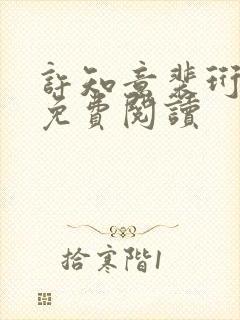 許知意裴珩
免費閱讀
拾寒階1